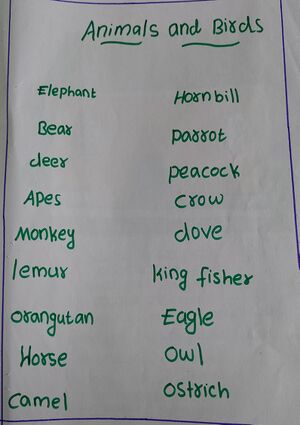 Animals and Birds
Elephant Hornbill
Bear parrot
deer peacock
Apes crow
Monkey dove
lemur king fisher
orangutan Eagle
Horse owl
camel ostrich